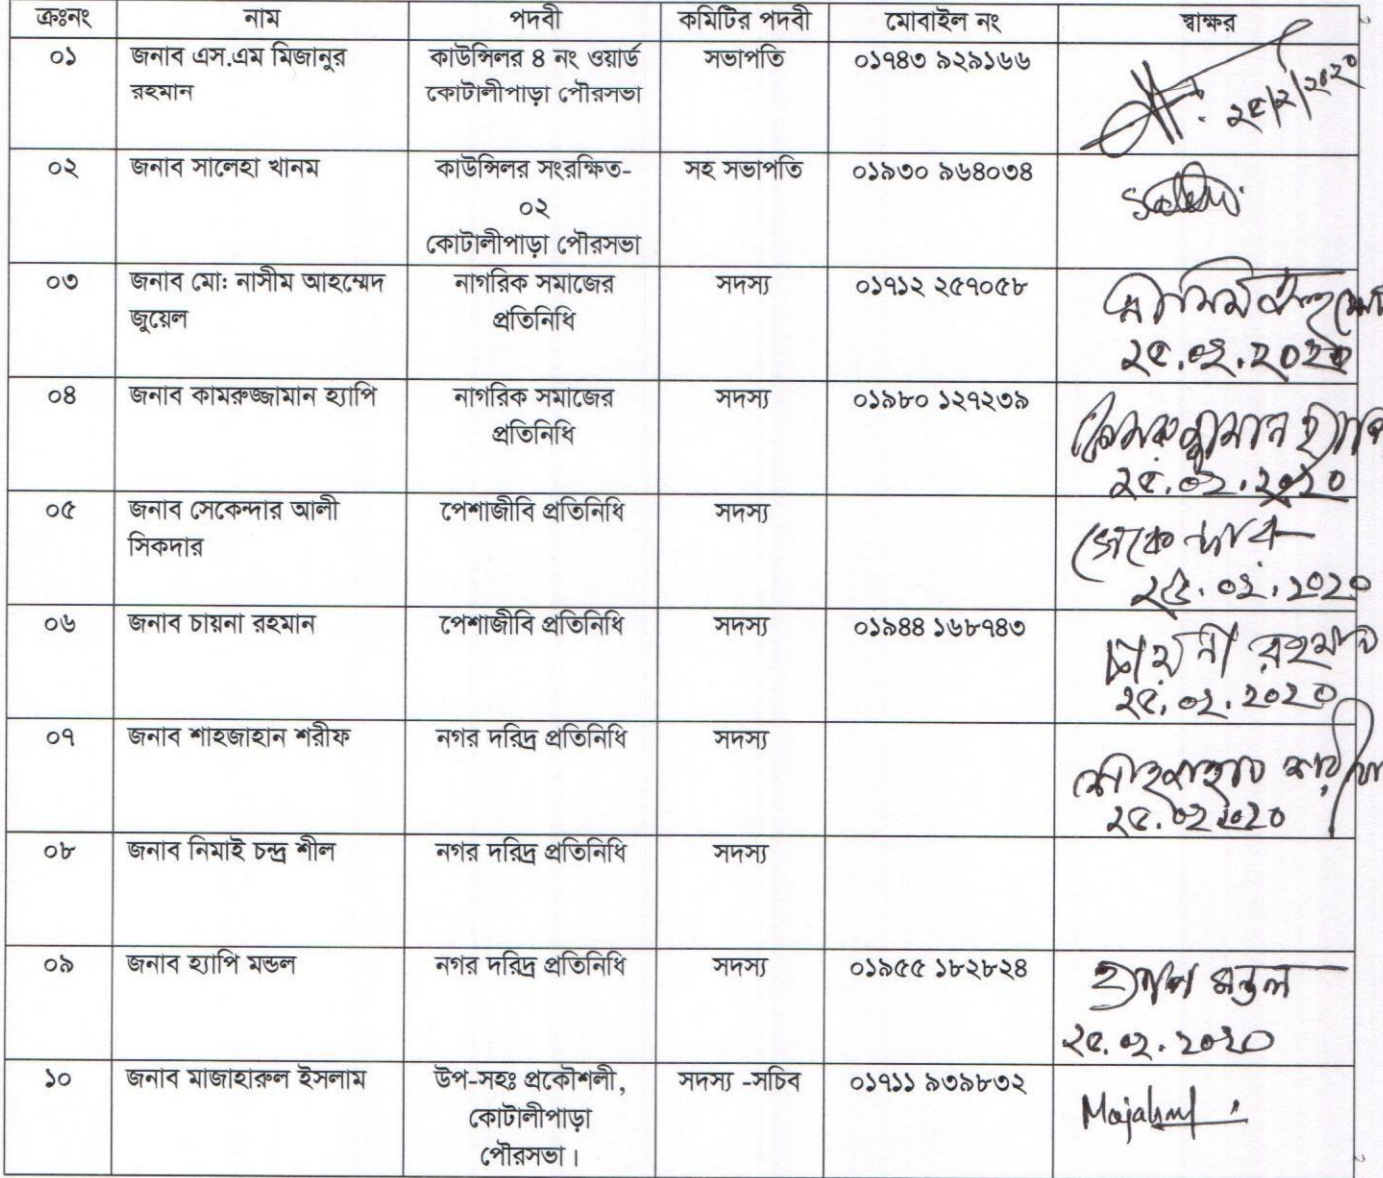 ক্রঃনং নাম পদবী কমিটির পদবী মোবাইল নং স্বাক্ষর
০১ জনাব এস.এম মিজানুর কাউন্সিলর ৪ নং ওয়ার্ড সভাপতি ০১৭৪৩ ৯২৯১৬৬
রহমান কোটালীপাড়া পৌরসভা
২৫/২/২০২০
০২ জনাব সালেহা খানম কাউন্সিলর সংরক্ষিত- সহ সভাপতি ০১৯৩০ ৯৬৪০৩৪
০২
কোটালীপাড়া পৌরসভা
০৩ জনাব মো: নাসীম আহম্মেদ নাগরিক সমাজের সদস্য ০১৭১২ ২৫৭০৫৮
জুয়েল প্রতিনিধি
২৫.০২.২০২০
০৪ জনাব কামরুজ্জামান হ্যাপি নাগরিক সমাজের সদস্য ০১৯৮০ ১২৭২৩৯ কামরুজ্জামান হ্যাপি
প্রতিনিধি
২৫.০২.২০২০
০৫ জনাব সেকেন্দার আলী পেশাজীবি প্রতিনিধি সদস্য সেকেন্দার
সিকদার
২৫.০২.২০২০
০৬ জনাব চায়না রহমান পেশাজীবি প্রতিনিধি সদস্য ০১৯৪৪ ১৬৮৭৪৩ চায়না রহমান
২৫.০২.২০২০
০৭ জনাব শাহজাহান শরীফ নগর দরিদ্র প্রতিনিধি সদস্য শাহজাহান শরীফ
২৫.০২.২০২০
০৮ জনাব নিমাই চন্দ্র শীল নগর দরিদ্র প্রতিনিধি সদস্য
০৯ জনাব হ্যাপি মন্ডল নগর দরিদ্র প্রতিনিধি সদস্য ০১৯৫৫ ১৮২৮২৪ হ্যাপি মন্ডল
২৫.০২.২০২০
১০ জনাব মাজাহারুল ইসলাম উপ-সহঃ প্রকৌশলী, সদস্য -সচিব ০১৭১১ ৯৩৯৮৩২
কোটালীপাড়া
পৌরসভা।